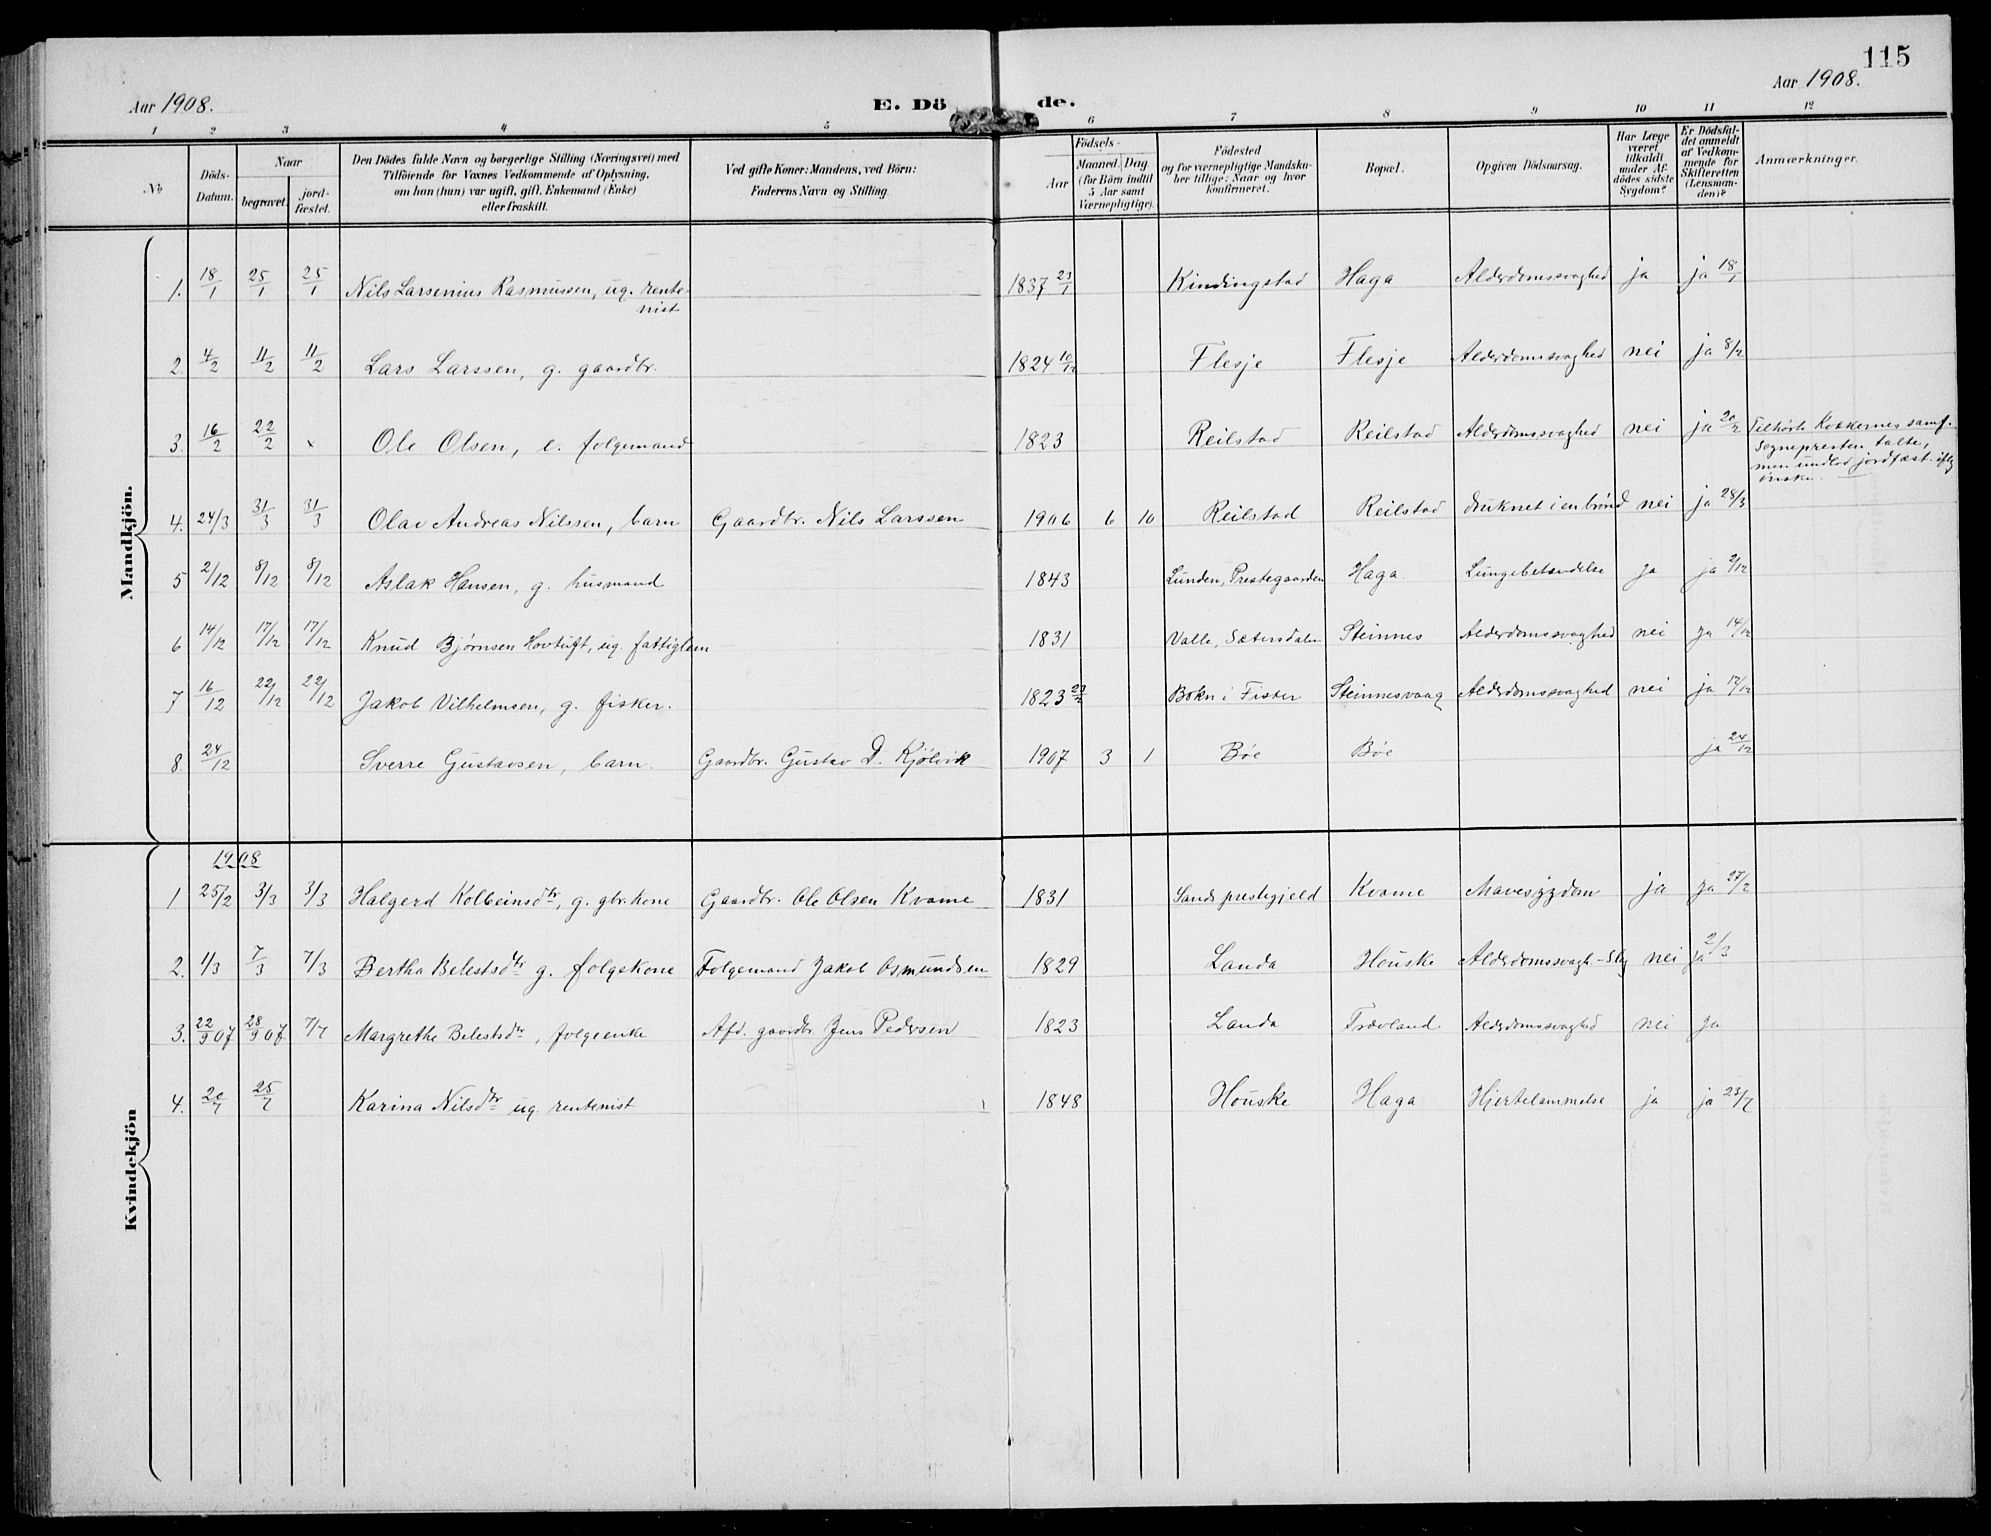 115
Aar 1908.
E. Döde.
Aar 1908.
1 2 3 4 5 6 7 8 9 10 11 12
No
Döds-Datum.
Naar
begravet.
jord-fæstet.
Den Dödes fulde Navn og borgerlige Stilling (Næringsvei) med
Tilföiende for Voxnes Vedkommende af Oplysning,
om han (hun) var ugift, gift, Enkemand (Enke)
eller fraskilt.
Ved gifte Koner: Mandens, ved Börn:
Faderens Navn og Stilling.
Födsels-
Aar
Maaned. Dag.
(for Börn indtil
5 Aar samt
Værnepligtige).
Födested
og for værnepligtige Mandsku-
ber tillige: Naar og hvor
konfirmeret.
Bopæl.
Opgiven Dödsaarsag.
Har Læge
været
tilkaldt
under Af-
dödes sidste
Sygdom?
Er Dödsfal-
det anmeldt
af Vedkom-
mende for
Skifteretten
(Lensman-
den)?
Anmærkninger.
Mandkjön.
1. 18/1 25/1 25/1 Nils Larsenius Rasmussen, ug. rentenist 1837 23/1 Kindingstad Haga Alderdomssvaghed ja ja 18/1
2. 4/2 11/2 11/2 Lars Larssen, g. gaardbr. 1824 10/12 Flesje Flesje Alderdomssvaghed nei ja 8/2
3. 16/2 22/2 Ole Olsen, e. folgemand 1823 Reilstad Reilstad Alderdomssvaghed nei ja 20/2 Tilhørte Kvækernes samf.
Sognepresten talte,
men undlod jordfæst. eftr
ønske.
4. 24/3 31/3 31/3 Olav Andreas Nilssen, barn Gaardbr. Nils Larssen 1906 6 10 Reilstad Reilstad druknet i en brønd nei ja 28/3
5 2/12 8/12 8/12 Aslak Hansen, g. husmand 1843 Lunden, Prestegaarden Haga Lungebetændelse ja ja 9/12
6 14/12 17/12 17/12 Knud Bjørnsen Hovtuft, ug. fattiglem 1831 Valle, Sætersdalen Steinnes Alderdomssvaghed nei ja 14/12
7 16/12 22/12 22/12 Jakob Vilhelmsen, g. fisker. 1823 Bokn i Fister Steinnesvaag Alderdomssvaghed nei ja 17/12
8. 24/12 Sverre Gustavsen, barn. Gaardbr. Gustav D. Kjølvik 1907 3 1 Bøe Bøe ja 24/12
Kvindekjön
1908
1 25/2 3/3 3/3 Halgerd Kolbeinsdtr, g. gbr.kone Gaardbr. Ole Olsen Kvame 1831 Sands prestegjeld Kvame Mavesygdom ja ja 27/2
2. 1/3 7/3 7/3 Bertha Belestsdtr g. folgekone Folgemand Jakob Osmundsen 1829 Landa Houske Alderdomssvagh. - Slag nei ja 2/3
3. 22/9 07 28/9 07 7/7 Margrethe Belestsdtr, folgeenke Afd. gaardbr. Jens Pedersen 1823 Landa Trævland Alderdomssvaghed nei ja
4. 20/7 25/7 Karina Nilsdtr ug. rentenist 1848 Houske Haga Hjertelammelse ja ja 23/7